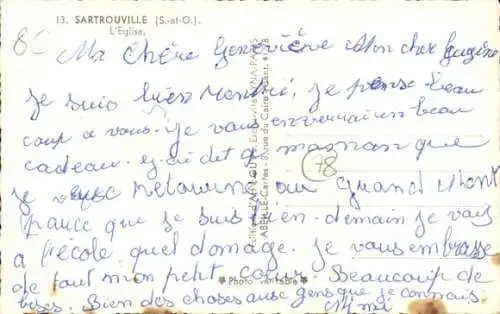 13. SARTROUVILLE (S.-et-O.).
L'Eglise.
80
Ma Chère Geneviève Mon cher Eugène
je suis bien rentré, je pense beau
coup a vous. je vous enverrai un beau
cadeau. j'ai dit à maman que
78
je veux retourner au Grand Mont
parce que je suis bien. demain je vais
a l'école quel domage. je vous embrasse
de tout mon petit cœur. Beaucoup de
bises. Bien des choses aux gens que je connais.
Mimi
* Photo véritable *